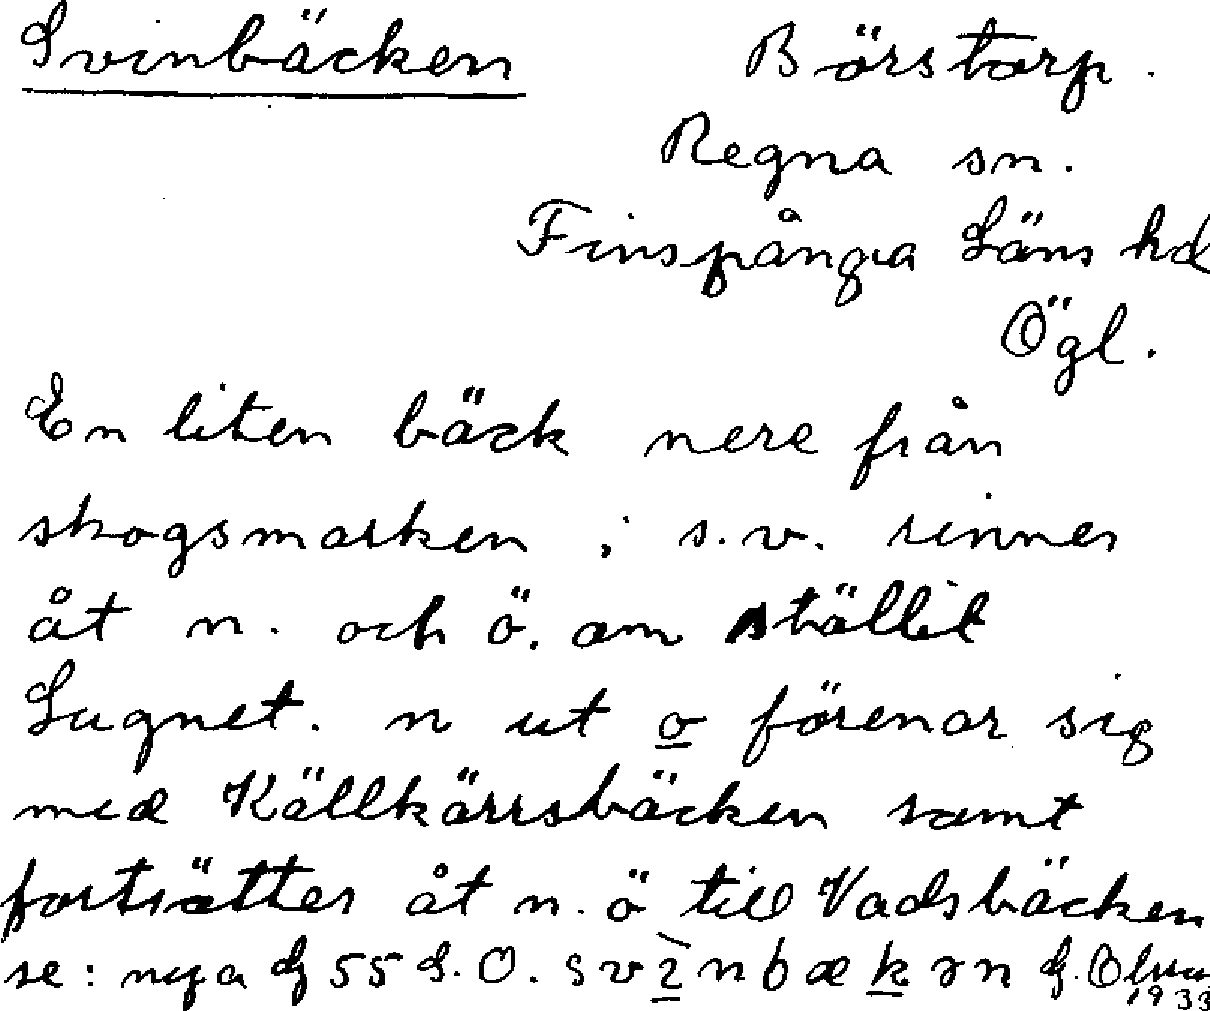 Svinbäcken Börstorp.
Regna sn.
Finspånga Läns hd
Ögl.
En liten bäck nere från
skogsmarken i s.v. rinner
åt n. och ö. om stället
Lugnet. n ut o förenar sig
med Källkärrsbäcken samt
fortsätter åt n. ö till Vadsbäcken
se: nya 55 S. O. svìnbækən
1933